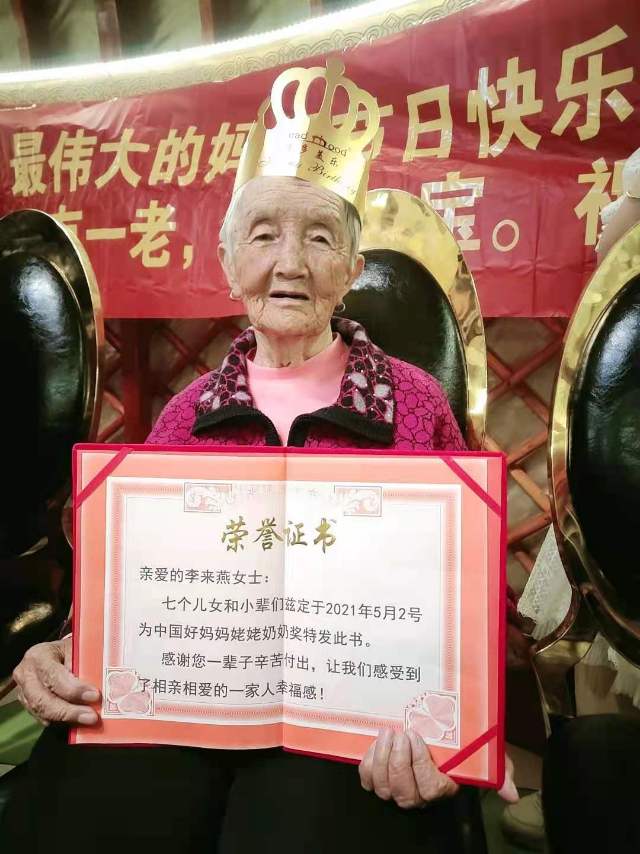 最伟大的妈
日快乐
一老，
宝。祝
荣誉证书
亲爱的李来燕女士：
七个儿女和小辈们兹定于2021年5月2号
为中国好妈妈姥姥奶奶奖特发此书。
感谢您一辈子辛苦付出，让我们感受到
了相亲相爱的一家人幸福感！